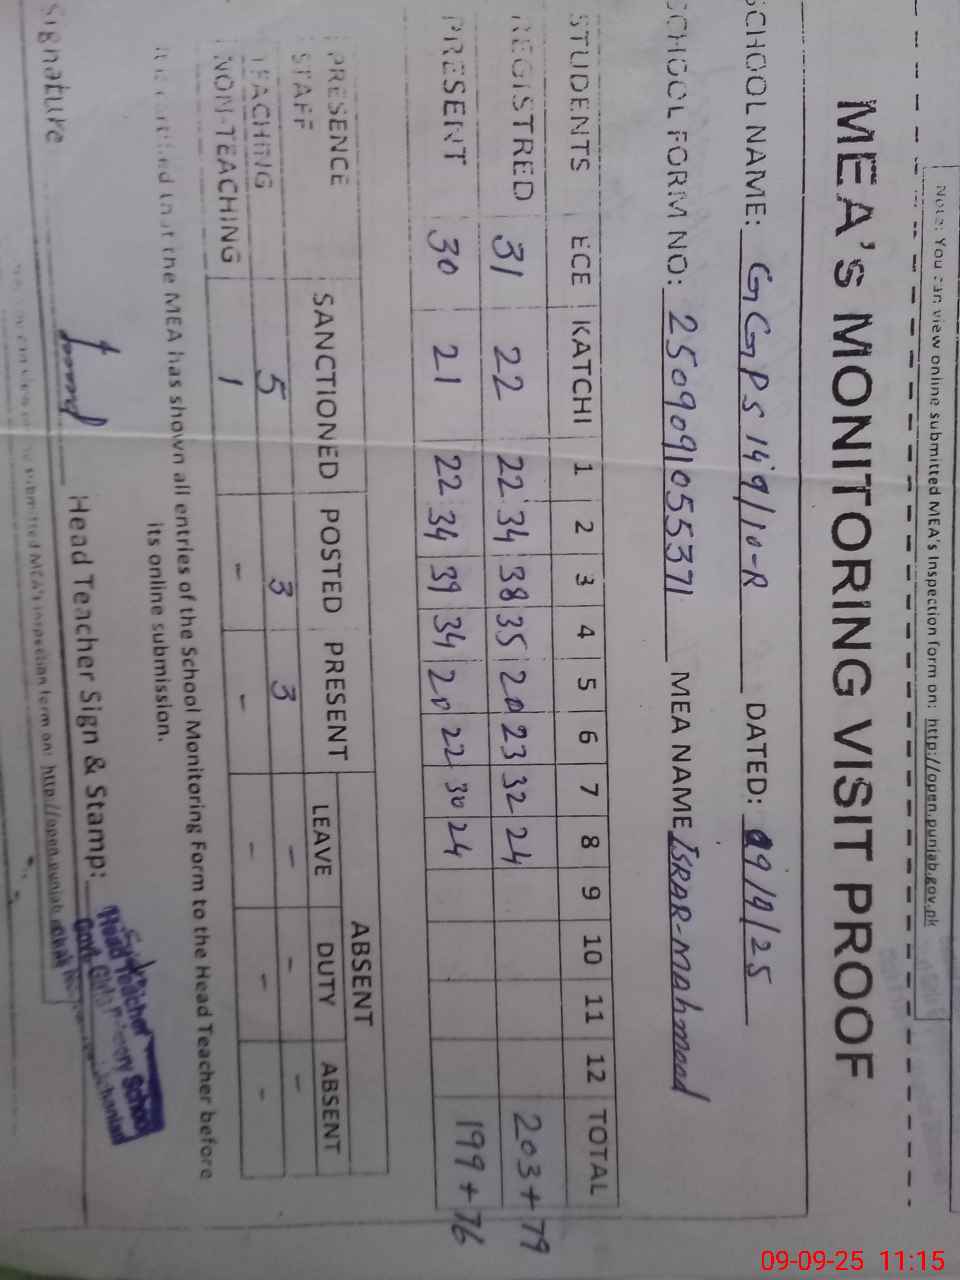 Note: You can view online submitted MEA's Inspection form on: http://open.punjab.gov.pk
MEA's MONITORING VISIT PROOF
SCHOOL NAME: GGPS 149/10-R DATED: 09/9/25
SCHOOL FORM NO: 2509091055371 MEA NAME ISRAR-Mahmood
STUDENTS ECE KATCHI 1 2 3 4 5 6 7 8 9 10 11 12 TOTAL
REGISTRED 31 22 22 34 38 35 20 23 32 24 203+79
PRESENT 30 21 22 34 39 34 20 22 30 24 199+76
PRESENCE SANCTIONED POSTED PRESENT ABSENT
STAFF LEAVE DUTY ABSENT
TEACHING 5 3 3 - - -
NON-TEACHING 1 - - - - -
It is certified that the MEA has shown all entries of the School Monitoring Form to the Head Teacher before
its online submission.
Signature Head Teacher Sign & Stamp:
Head Teacher
Govt. Girls Primary School
submitted MEA's Inspection form on: http://open.punjab
09-09-25 11:15